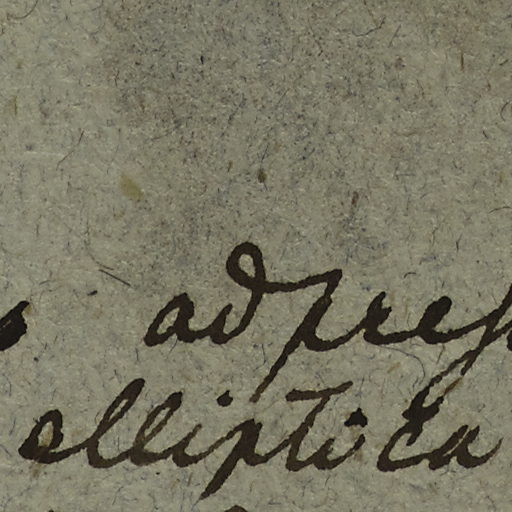 adpres
elliptica